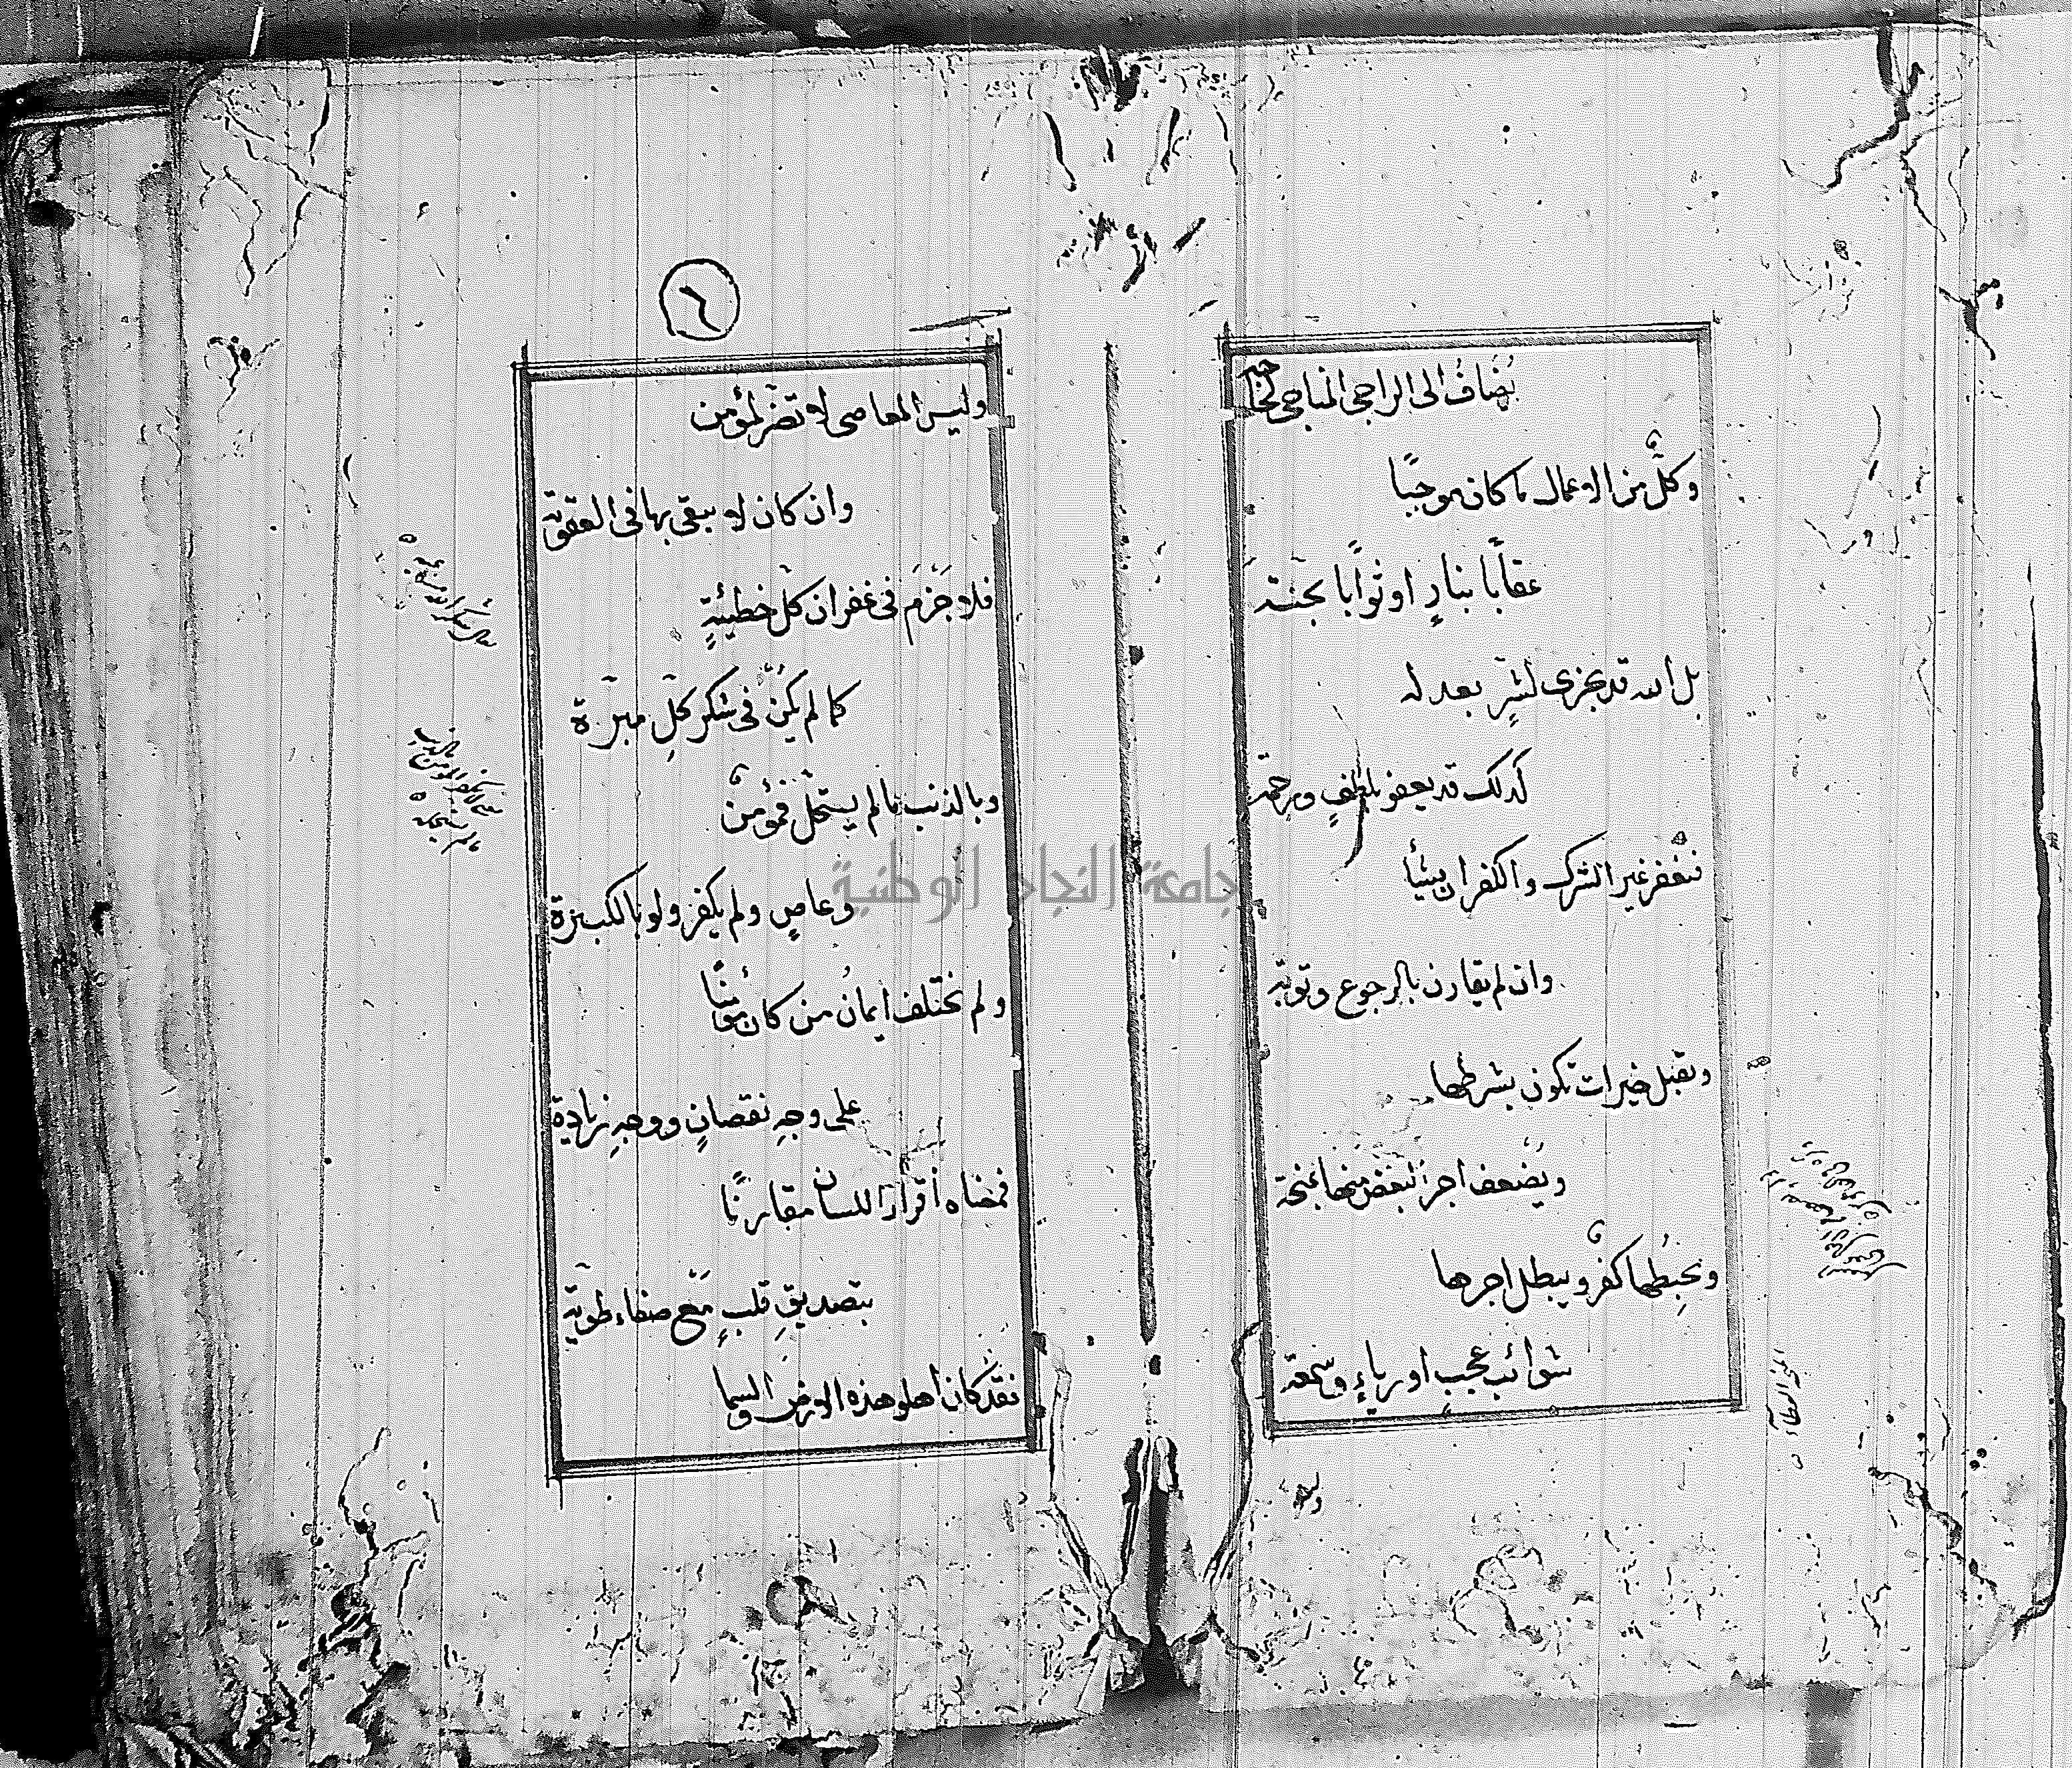 يُضَافُ الى الراجى المناجى
وكلٌّ من الاعمال ما كان موجبًا
عقابًا بنارٍ او ثوابًا بجنة
بل الله قد يجزى لشرٍ بعدله
كذلك قد يعفو بلطفٍ ورحمة
فيغفر غير الشرك والكفران يشأ
وان لم يقارن بالرجوع وتوبة
وتقبل خيرات تكون بشرطها
ويُضعف اجر البعض منها بمنحة
ويُحبِطُها كفرٌ ويبطل اجرها
شوائب عجبٍ او رياءٍ وسمعة
٦
وليس المعاصى لا تضر لمؤمن
وان كان لا يبقى بها فى العقوبة
فلا جزم فى غفران كل خطيئةٍ
كما لم يكن فى شكر كلِ مبرّة
وبالذنب ما لم يستحل فمؤمنٌ
وعاصٍ ولم يكفر ولو بالكبيرة
ولم يختلف ايمانُ من كان مؤمنًا
على وجهِ نقصانٍ ووجهِ زيادة
فمعناه اقرار اللسان مقارنًا
بتصديقِ قلبٍ مع صفاء طوية
فقد كان اهل هذه الارض والسما
جامعة النجاح الوطنية